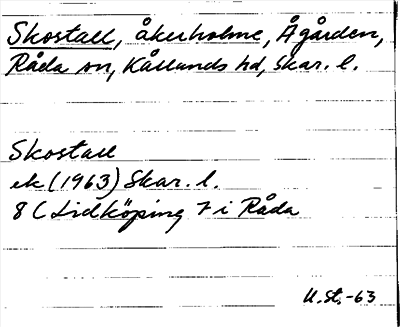 Skostall, åkerholme, Ågården,
Råda sn, Kållands hd, Skar. l.
Skostall
ek (1963) Skar. l.
8C Lidköping 7 i Råda
U.St. -63